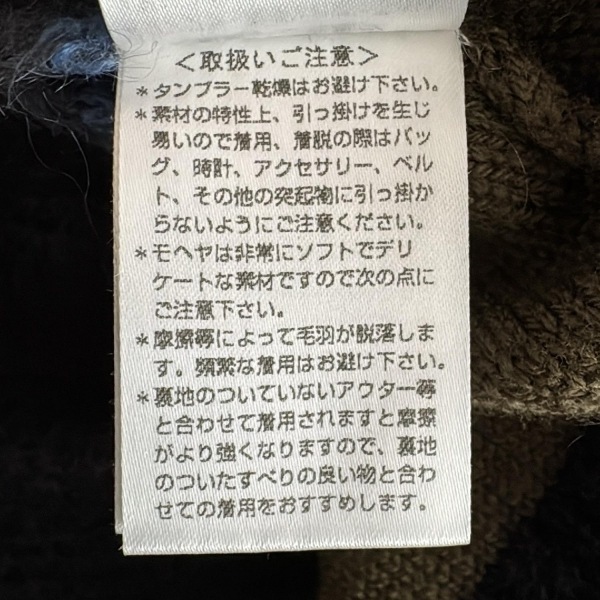 ＜取扱いご注意＞
＊タンブラー乾燥はお避け下さい。
＊素材の特性上、引っ掛けを生じ
易いので着用、着脱の際はバッ
グ、時計、アクセサリー、ベル
ト、その他の突起物に引っ掛か
らないようにご注意ください。
＊モヘヤは非常にソフトでデリ
ケートな素材ですので次の点に
ご注意下さい。
＊摩擦等によって毛羽が脱落しま
す。頻繁な着用はお避け下さい。
＊裏地のついていないアウター等
と合わせて着用されますと摩擦
がより強くなりますので、裏地
のついたすべりの良い物と合わ
せての着用をおすすめします。